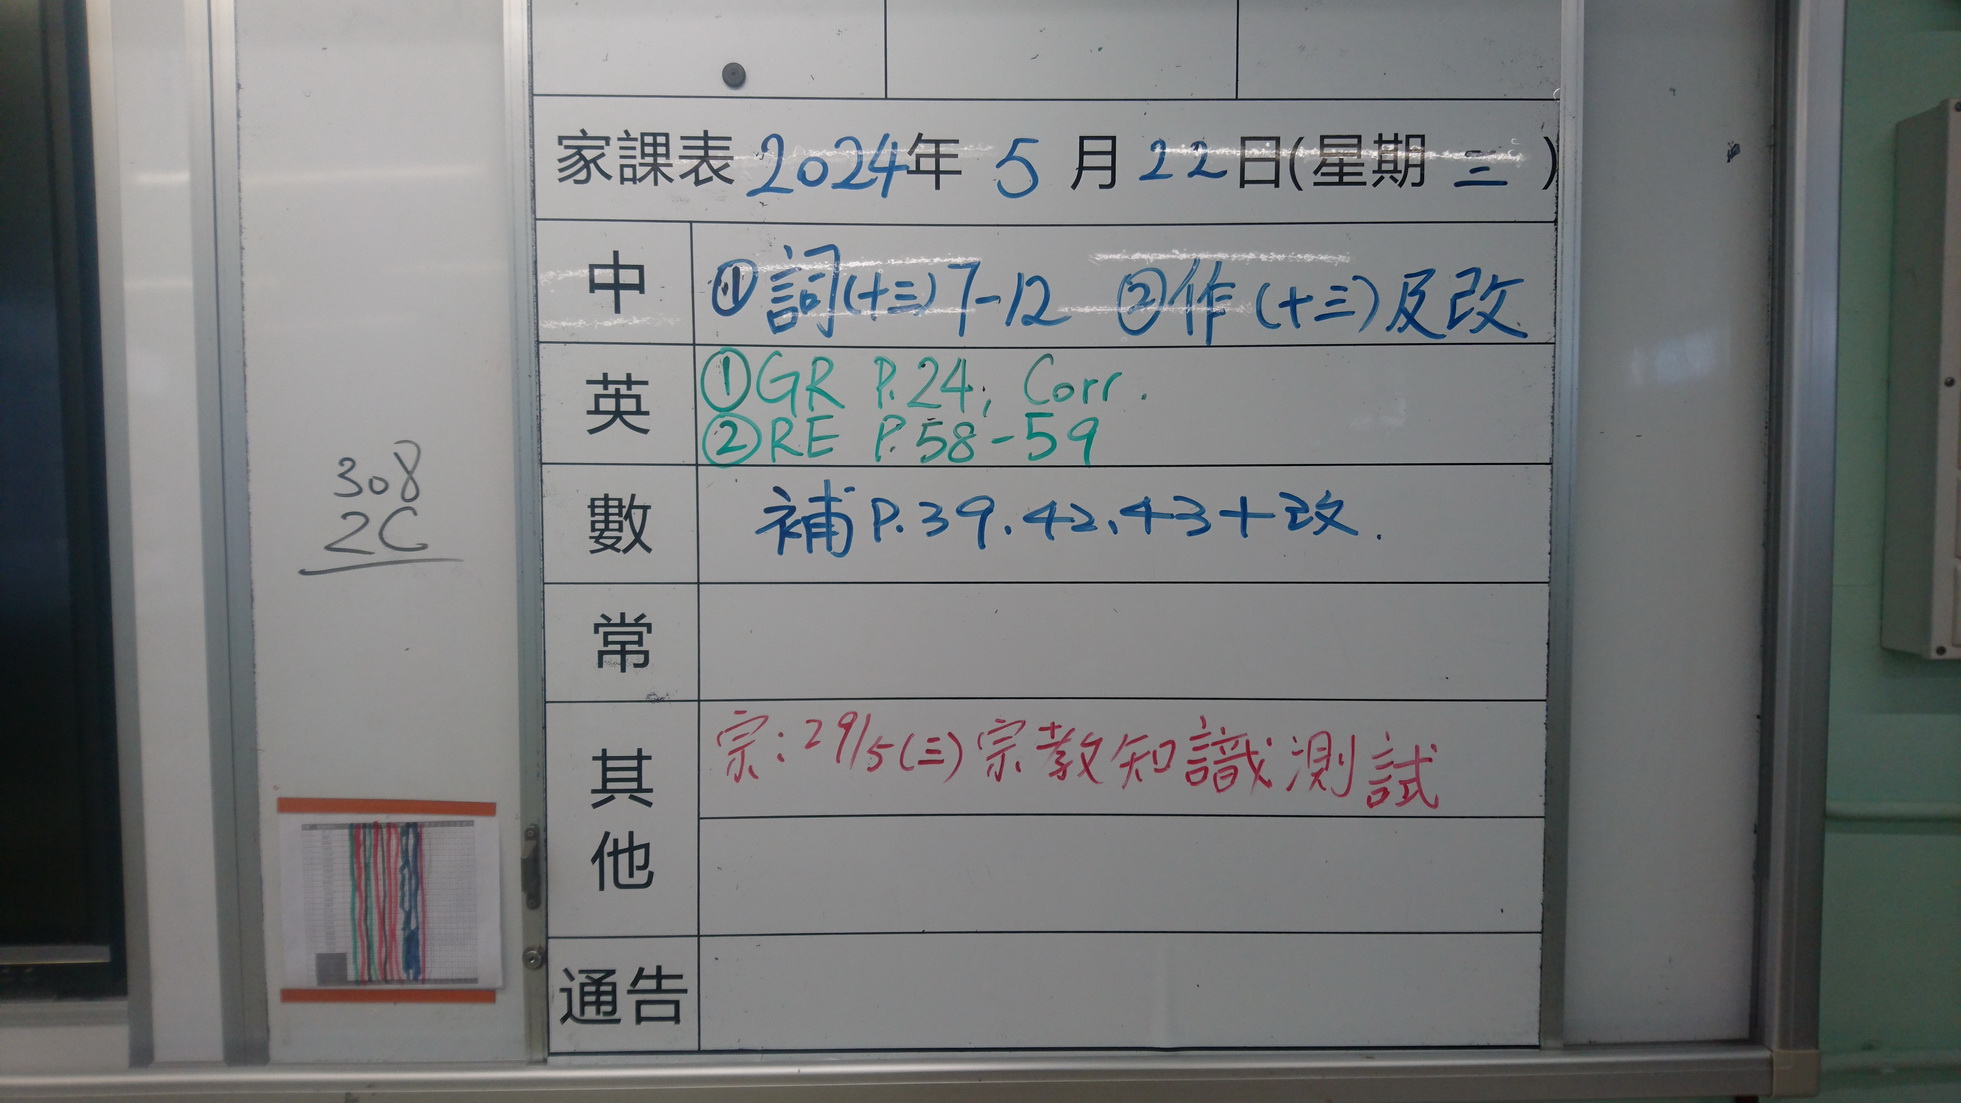 家課表 2024年 5 月 22日(星期 三 )
中 ①詞(十三)7-12 ②作(十三)及改
英 ①GR P.24; Corr.
②RE P.58-59
308
2C
數 補P.39.42、43+改.
常
其他 宗:29/5(三)宗教知識測試
通告